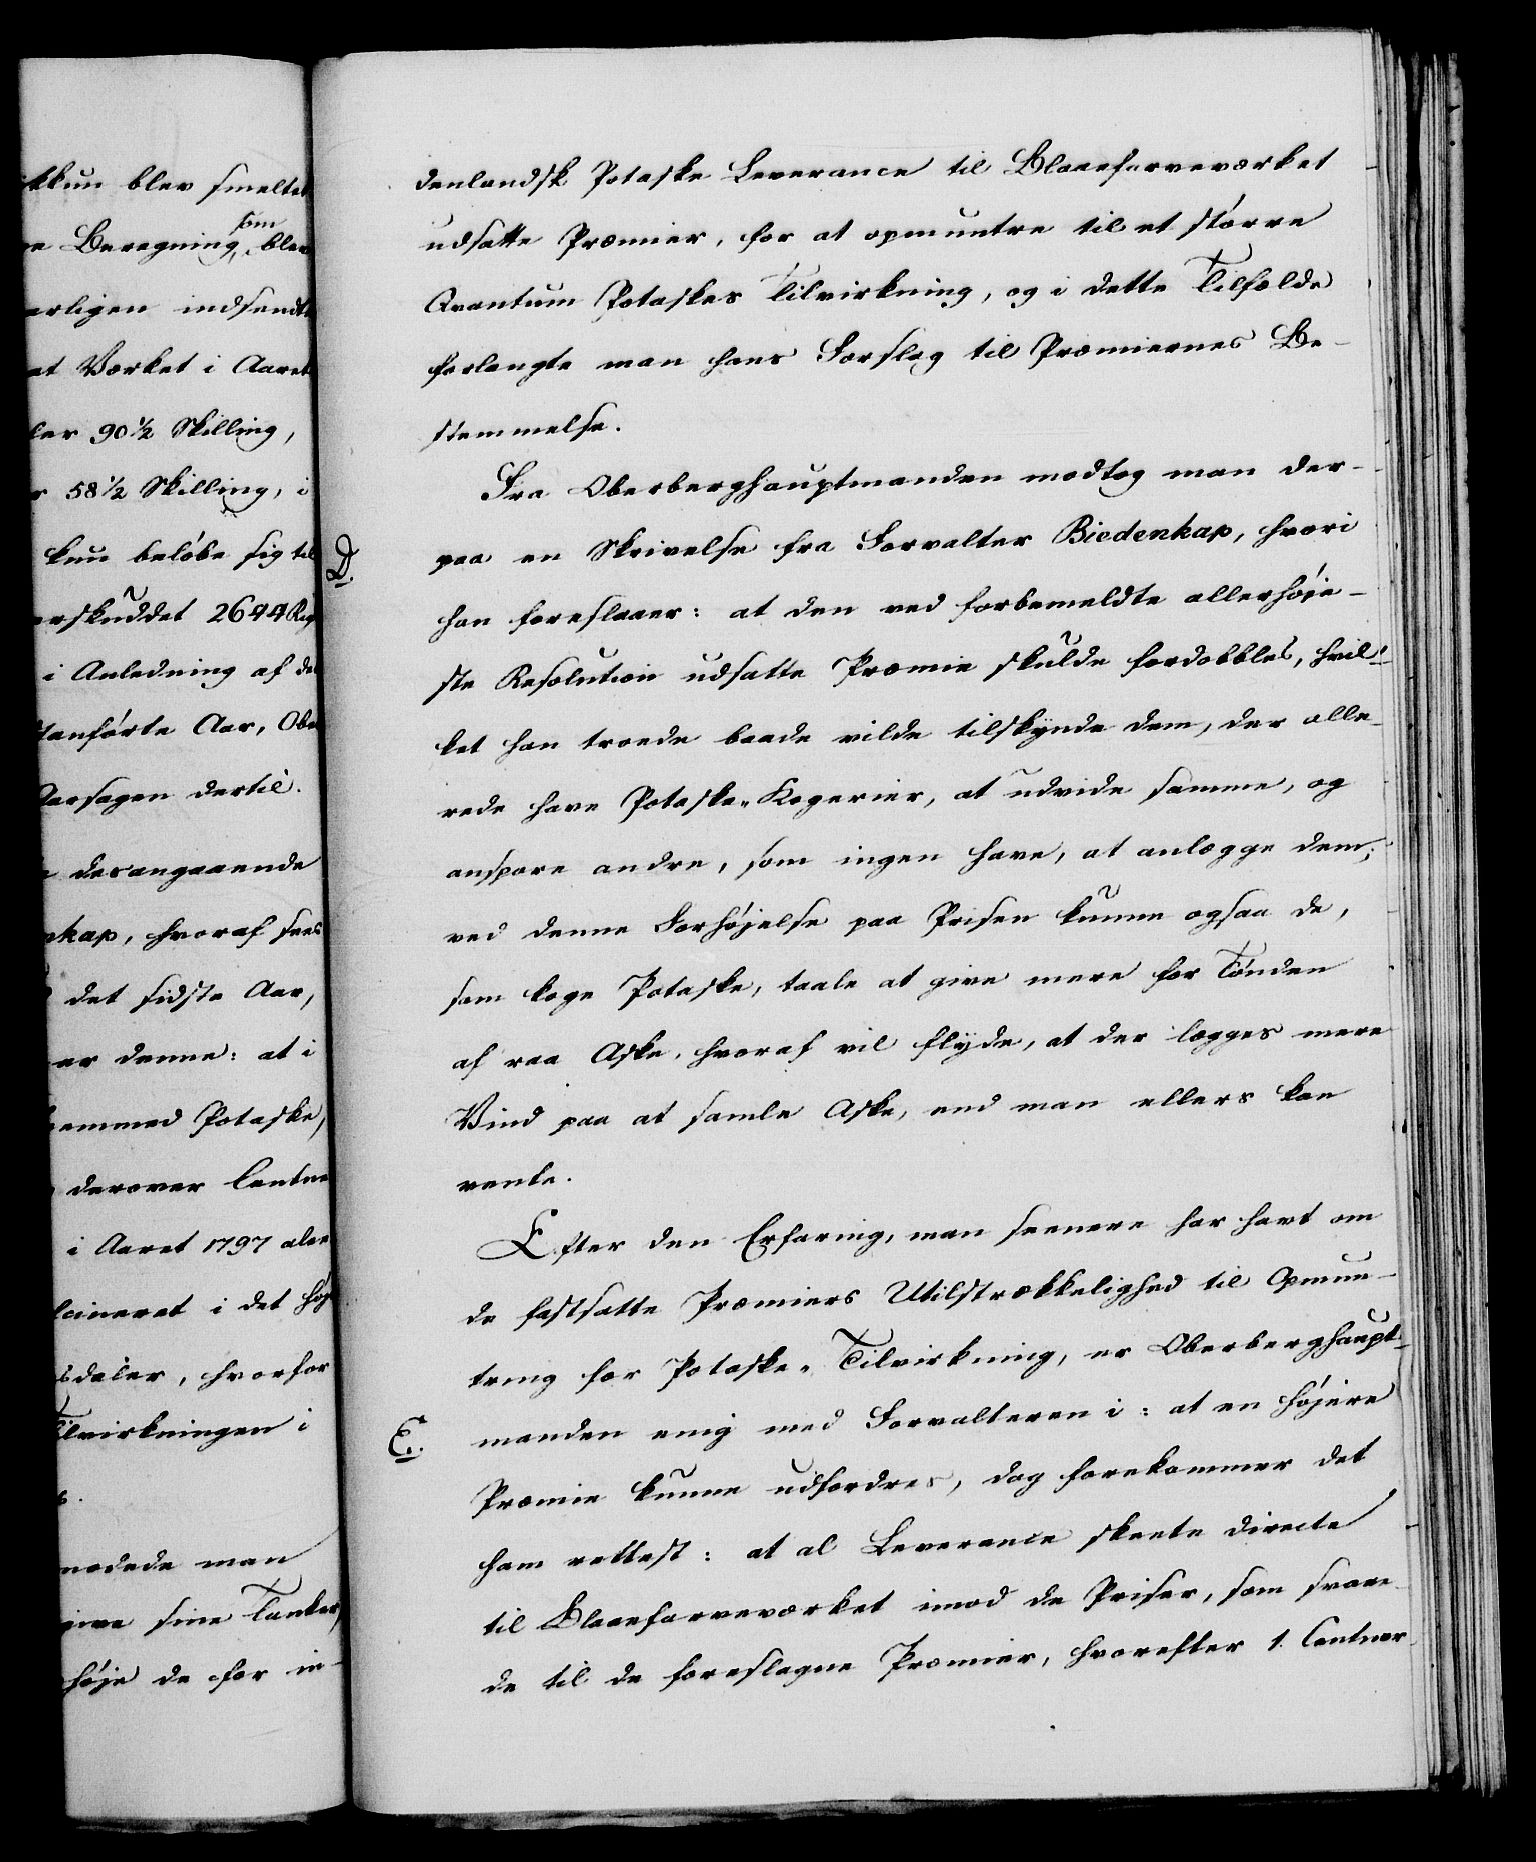 kkun blev smeltet
e Beregning, som blev
erligen indsendt
at Værket i Aaret
ler 90½ Skilling,
r 58½ Skilling, i
kun beløbe sig til
erskuddet 2644 Rig
i Anledning af de
anførte Aar, Obe
Aarsagen dertil.
desangaaende
nkap, hvoraf sees
det sidste Aar,
er denne: at i
emmed Potaske,
derover Centne
i Aaret 1797 ale
lcineret i det høj
sdaler, hvorfor
Tilvirkningen i
modede man
give sine Tanker,
høje de for in-
denlandsk Potaske Leverance til Blaaefarveværket
udsatte Præmier, for at opmuntre til et større
Qvantum Potaskes Tilvirkning, og i dette Tilfælde
forlangte man hans Forslag til Præmiernes Be-
stemmelse.
Fra Oberberghauptmanden modtog man der-
D. paa en Skrivelse fra Forvalter Biedenkap, hvori
han foreslaaer: at den ved forbemeldte allerhøje-
ste Resolution udsatte Præmie skulde fordobbles, hvil-
ket han troede baade vilde tilskynde dem, der alle-
rede have Potaske-Kogerier, at udvide samme, og
anspore andre, som ingen have, at anlægge dem;
ved denne Forhøjelse paa Prisen kunne ogsaa de,
som koge Potaske, taale at give mere for Tønden
af raa Aske, hvoraf vil flyde, at der lægges mere
Vind paa at samle Aske, end man ellers kan
vente.
Efter den Erfaring, man seenere har havt om
de fastsatte Præmiers Utilstrækkelighed til Opmun-
tring for Potaske-Tilvirkning, er Oberberghaupt-
E. manden enig med Forvalteren i: at en højere
Præmie kunne udfordres, dog forekommer det
ham rettest: at al Leverance skeete directe
til Blaaefarveværket imod de Priser, som svare-
de til de foreslagne Præmier, hvorefter 1. Centner